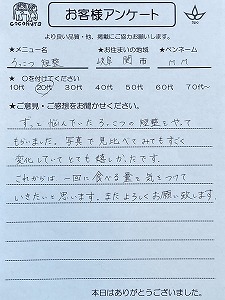 cocokara
お客様アンケート
より良い品質・他、掲載にご協力お願いします。
★メニュー名 ★お住まいの地域 ★ペンネーム
ろっこつ 矯整 岐阜 関市 M.M
★ ○を付けてください
10代 20代 30代 40代 50代 60代 70代～
★ご意見・ご感想をお聞かせください。
ずっと悩んでいたろっこつの矯整をやって
もらいました。写真で見比べてみてもすごく
変化していてとても嬉しかったです。
これからは一回に食べる量も気をつけて
いきたいと思います。またよろしくお願い致します。
本日はありがとうございました。